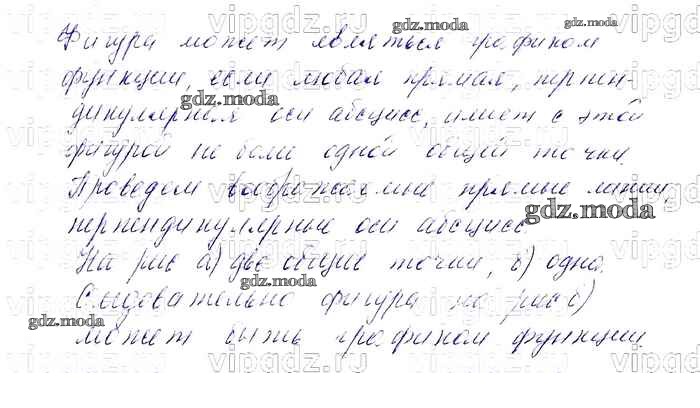 Фигура может являться графиком
функции, если любая прямая, перпен-
дикулярная оси абсцисс, имеет с этой
фигурой не более одной общей точки.
Проведем воображаемые прямые линии,
перпендикулярные оси абсцисс
На рис а) две общие точки, б) одна.
Следовательно фигура на рис б)
может быть графиком функции.
gdz.moda
gdz.moda
gdz.moda
gdz.moda
gdz.moda
gdz.moda
vipgdz.ru vipgdz.ru vipgdz.ru